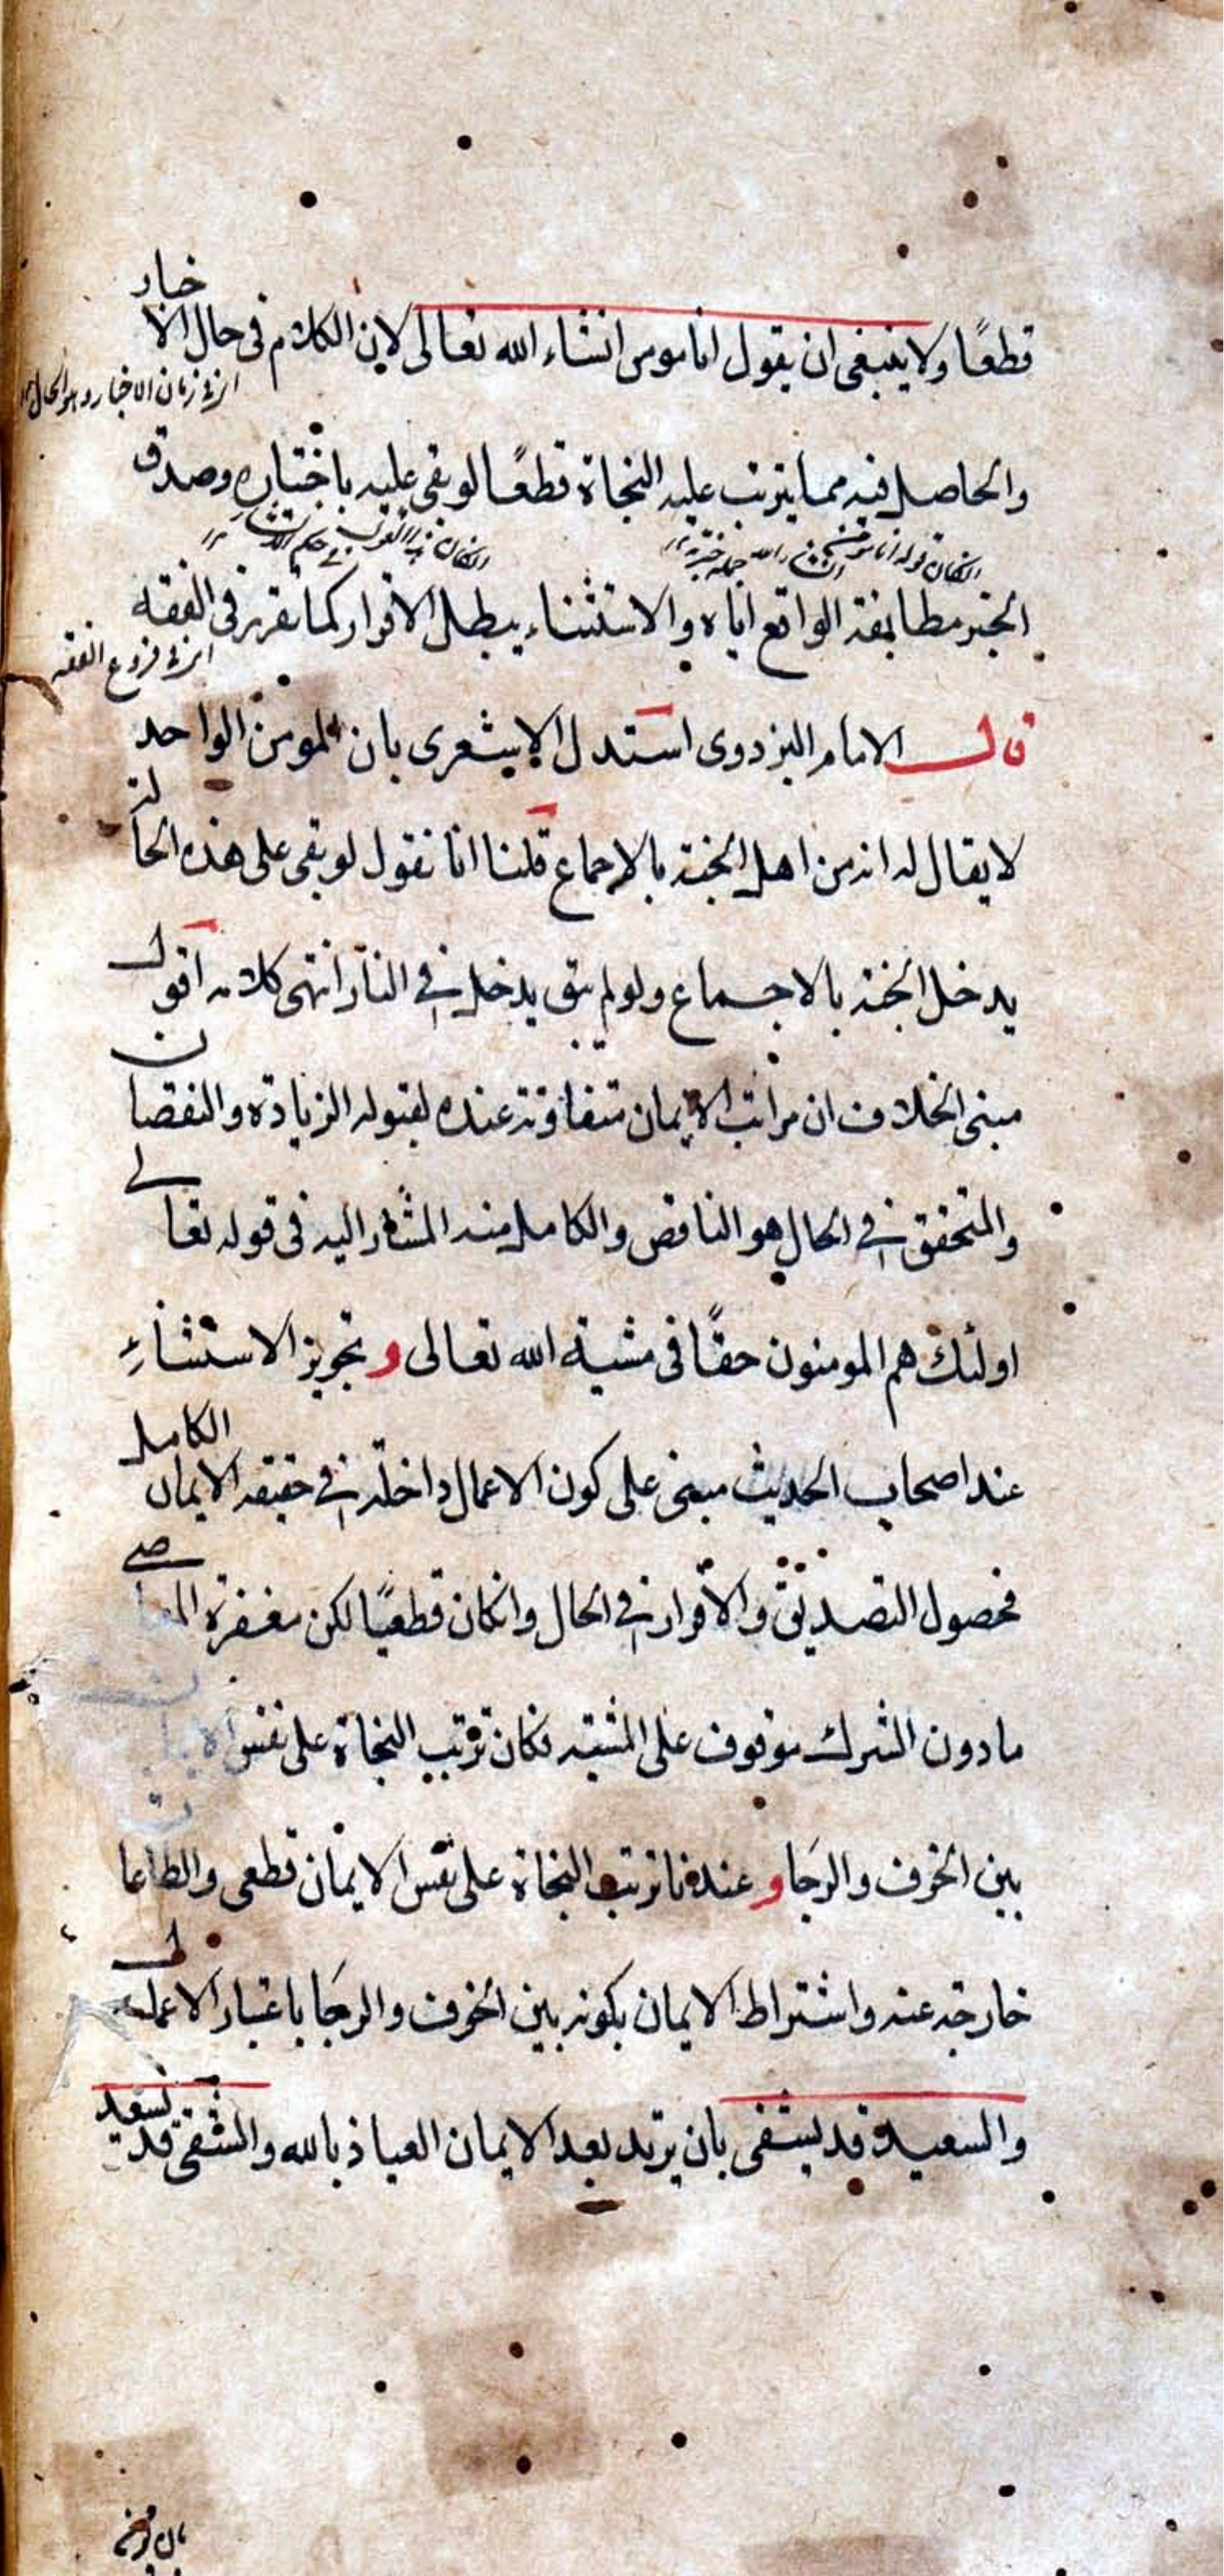 قطعًا ولا ينبغى ان يقول انا مومن انشاء الله تعالى لان الكلام فى حال الاخبار
اى فى زمان الاخبار وهو الحال
والحاصل فيه مما يترتب عليه النجاة قطعًا لو بقى عليه باختياره وصدق
ان كان قوله انا مومن ان شاء الله جملة خبرية
ان كان هذا القول فى حكم الانشاء
الخبر مطابقة الواقع اياه والاستثناء يبطل الاقرار كما تقرر فى الفقه
اى فى فروع الفقه
قال الامام البزدوى استدل الاشعرى بان المومن الواحد
لا يقال له انه من اهل الجنة بالاجماع قلنا انا نقول لو بقى على هذه الحالة
يدخل الجنة بالاجماع ولو لم يبق يدخل فى النار انتهى كلامه اقول
مبنى الخلاف ان مراتب الايمان متفاوتة عنده لقبوله الزيادة والنقصان
والمتحقق فى الحال هو الناقص والكامل منه المشار اليه فى قوله تعالى
اولئك هم المومنون حقًا فى مشية الله تعالى وتجويز الاستثناء
عند اصحاب الحديث مبنى على كون الاعمال داخلة فى حقيقة الايمان الكامل
فحصول التصديق والاقرار فى الحال وانكان قطعيًا لكن مغفرة المعاصى
مادون الشرك موقوف على المشية فكان ترتيب النجاة على نفس
بين الخوف والرجا وعندنا ترتب النجاة على نفس الايمان قطعى والطاعات
خارجة عنه واشتراط الايمان بكونه بين الخوف والرجا باعتبار الاعمال
والسعيد قد يشقى بان يرتد بعد الايمان العياذ بالله والشقى قد يسعد